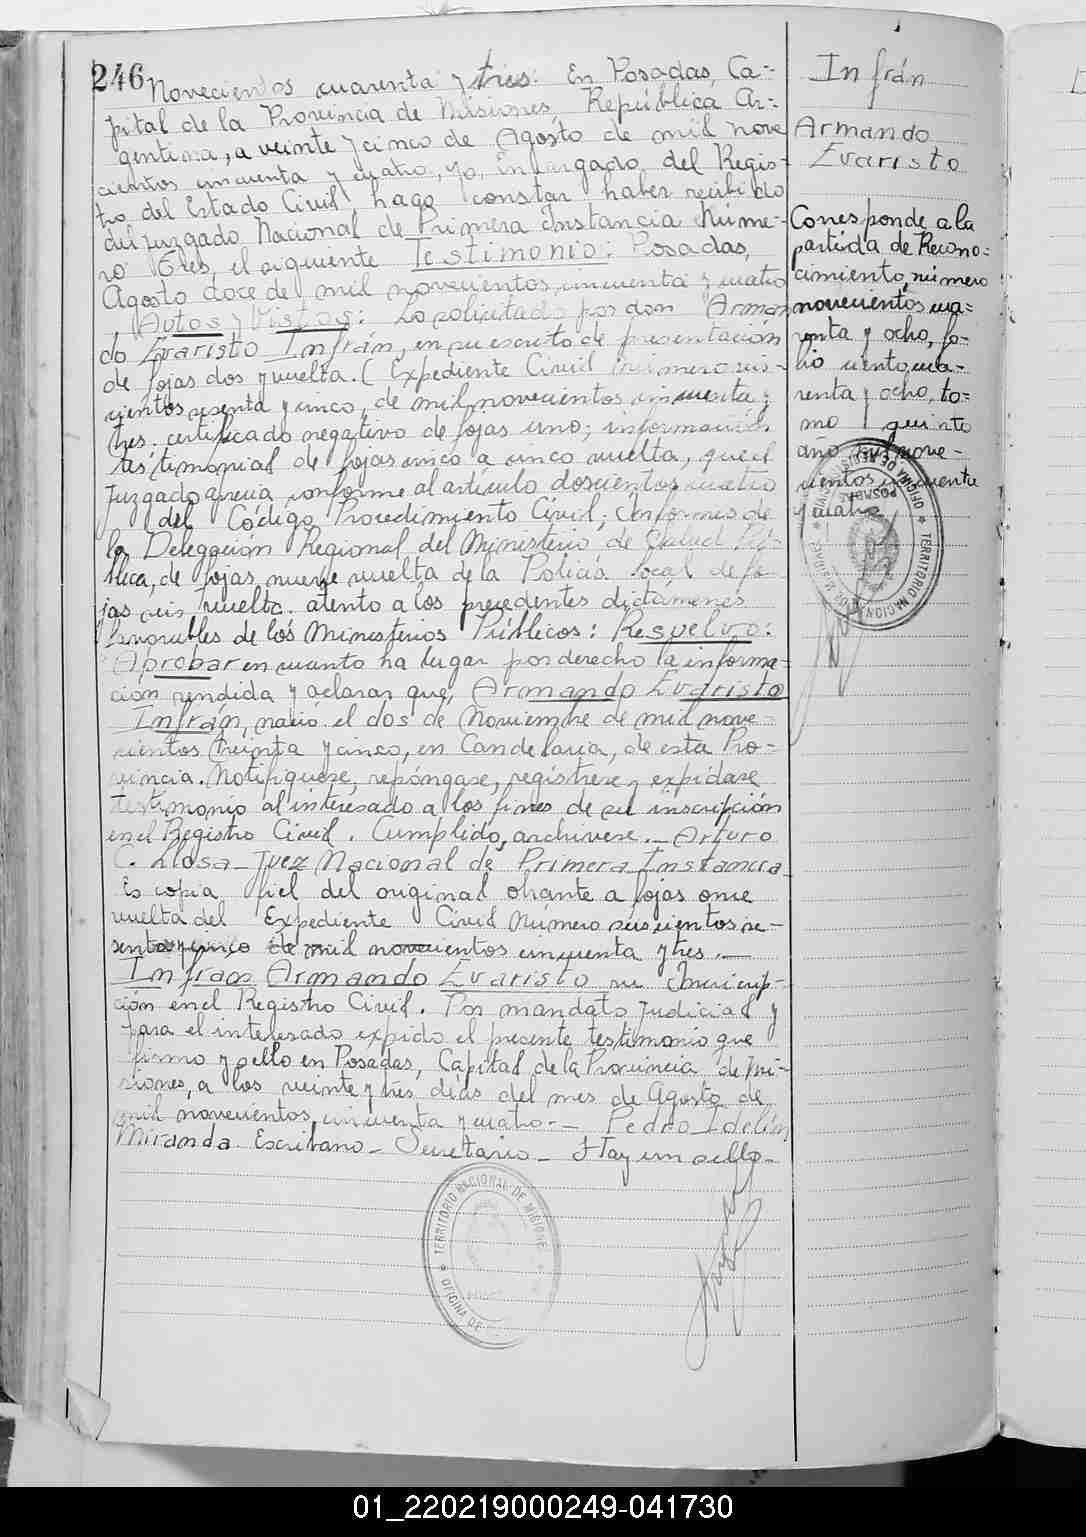 246
Novecientos cuarenta y tres: En Posadas, Ca=
pital de la Provincia de Misiones, República Ar=
gentina, a veinte y cinco de Agosto de mil nove
cientos cincuenta y cuatro, yo, Encargado del Regis-
tro del Estado Civil, hago constar haber recibido
del Juzgado Nacional de Primera Instancia Núme-
ro Tres, el siguiente Testimonio: Posadas,
Agosto doce de mil novecientos cincuenta y cuatro
Autos y Vistos: Lo solicitado por don Arman
do Evaristo Infrán, en su escrito de presentación
de fojas dos y vuelta. (Expediente Civil número seis-
cientos sesenta y cinco, de mil novecientos cincuenta y
tres. certificado negativo de fojas uno; información
testimonial de fojas cinco a cinco vuelta, que el
Juzgado aprecia conforme al artículo doscientos cuatro
del Código Procedimiento Civil; informes de
la Delegación Regional del Ministerio de Salud Pú-
blica, de fojas nueve vuelta de la Policía local de fo-
jas seis vuelta. atento a los precedentes dictamenes
favorables de los Ministerios Públicos: Resuelvo:
Aprobar en cuanto ha lugar por derecho la informa-
ción rendida y aclarar que, Armando Evaristo
Infrán, nació el dos de Noviembre de mil nove-
cientos treinta y cinco, en Candelaria, de esta Pro-
vincia. Notifíquese, repóngase, regístrese y expídase
testimonio al interesado a los fines de su inscripción
en el Registro Civil. Cumplido, archívese.- Arturo
C. Llosa - Juez Nacional de Primera Instancia-
Es copia fiel del original obrante a fojas once
vuelta del Expediente Civil Número seiscientos se-
senta y cinco de mil novecientos cincuenta y tres.-
Infran Armando Evaristo su Inscrip-
ción en el Registro Civil. Por mandato judicial y
para el interesado expido el presente testimonio que
firmo y sello en Posadas, Capital de la Provincia de Mi-
siones, a los veinte y tres días del mes de Agosto de
mil novecientos cincuenta y cuatro.- Pedro Idelín
Miranda Escribano - Secretario - Hay un sello-
Infrán
Armando
Evaristo
Corresponde a la
partida de Recono=
cimiento, número
novecientos cua=
renta y ocho, fo-
lio ciento cua-
renta y ocho, to=
mo quinto
año mil nove-
cientos cincuenta
y cuatro
TERRITORIO NACIONAL DE MISIONES
OFICINA DE
POSADAS
TERRITORIO NACIONAL DE MISIONE
OFICINA DE
01_220219000249-041730